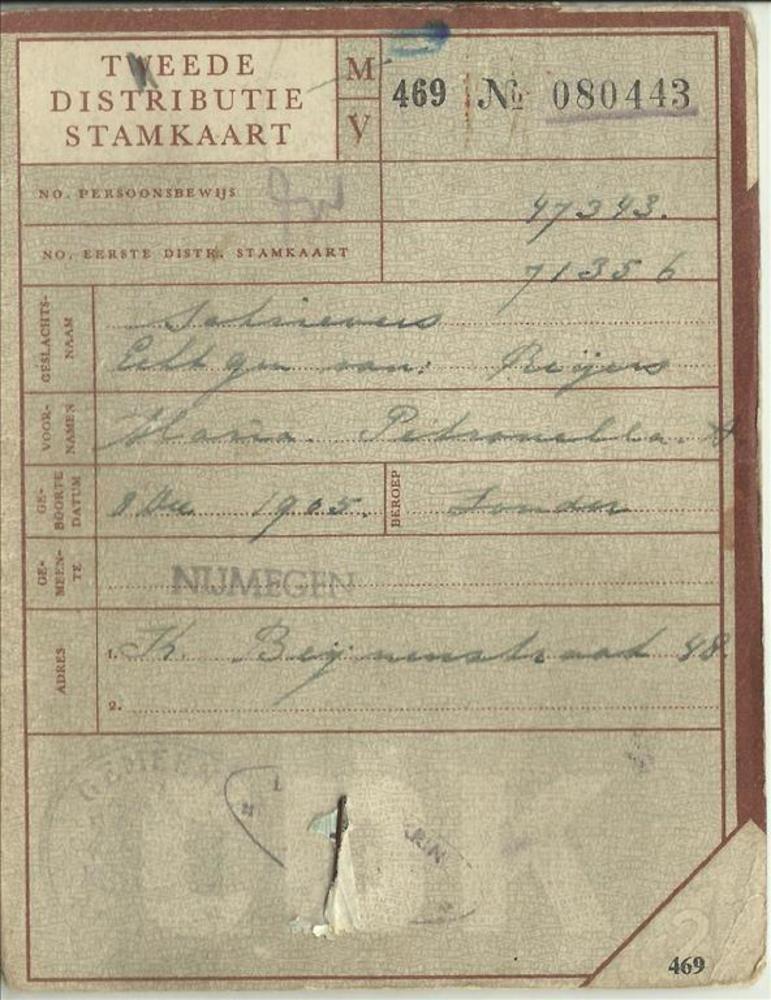 TWEEDE
DISTRIBUTIE
STAMKAART
M
V
469 No 080443
NO. PERSOONSBEWIJS
47343.
NO. EERSTE DISTR. STAMKAART
71356
GESLACHTS-
NAAM
Schrievers
Echtgen van: Reijers
VOOR-
NAMEN
Maria Petronella. A
GE-
BOORTE
DATUM
8 Dec 1905.
BEROEP
Zonder
GE-
MEEN-
TE
NIJMEGEN
ADRES
1. K. Beynenstraat 48.
2.
GEMEEN
DK
469